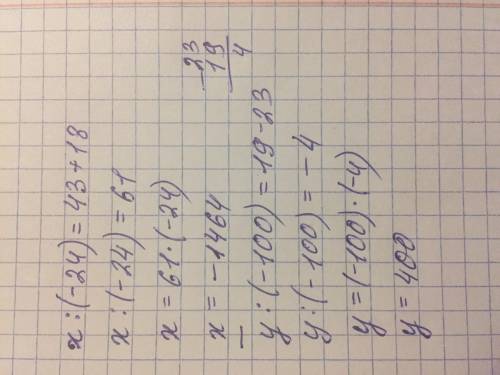 x : (-24) = 43 + 18
x : (-24) = 61
x = 61 · (-24)
x = -1464
y : (-100) = 19 - 23
y : (-100) = -4
y = (-100) · (-4)
y = 400
-23
19
4